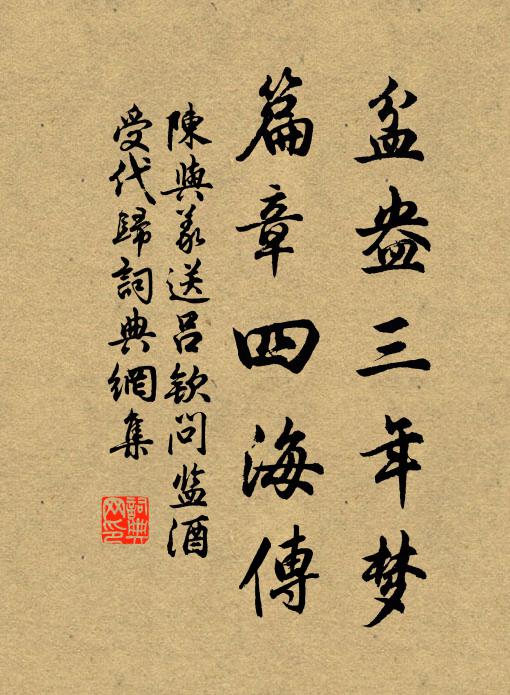 盆盎三年梦
篇章四海傳
陳與義送吕欽問监酒
受代歸詞典網集
詞典
网印